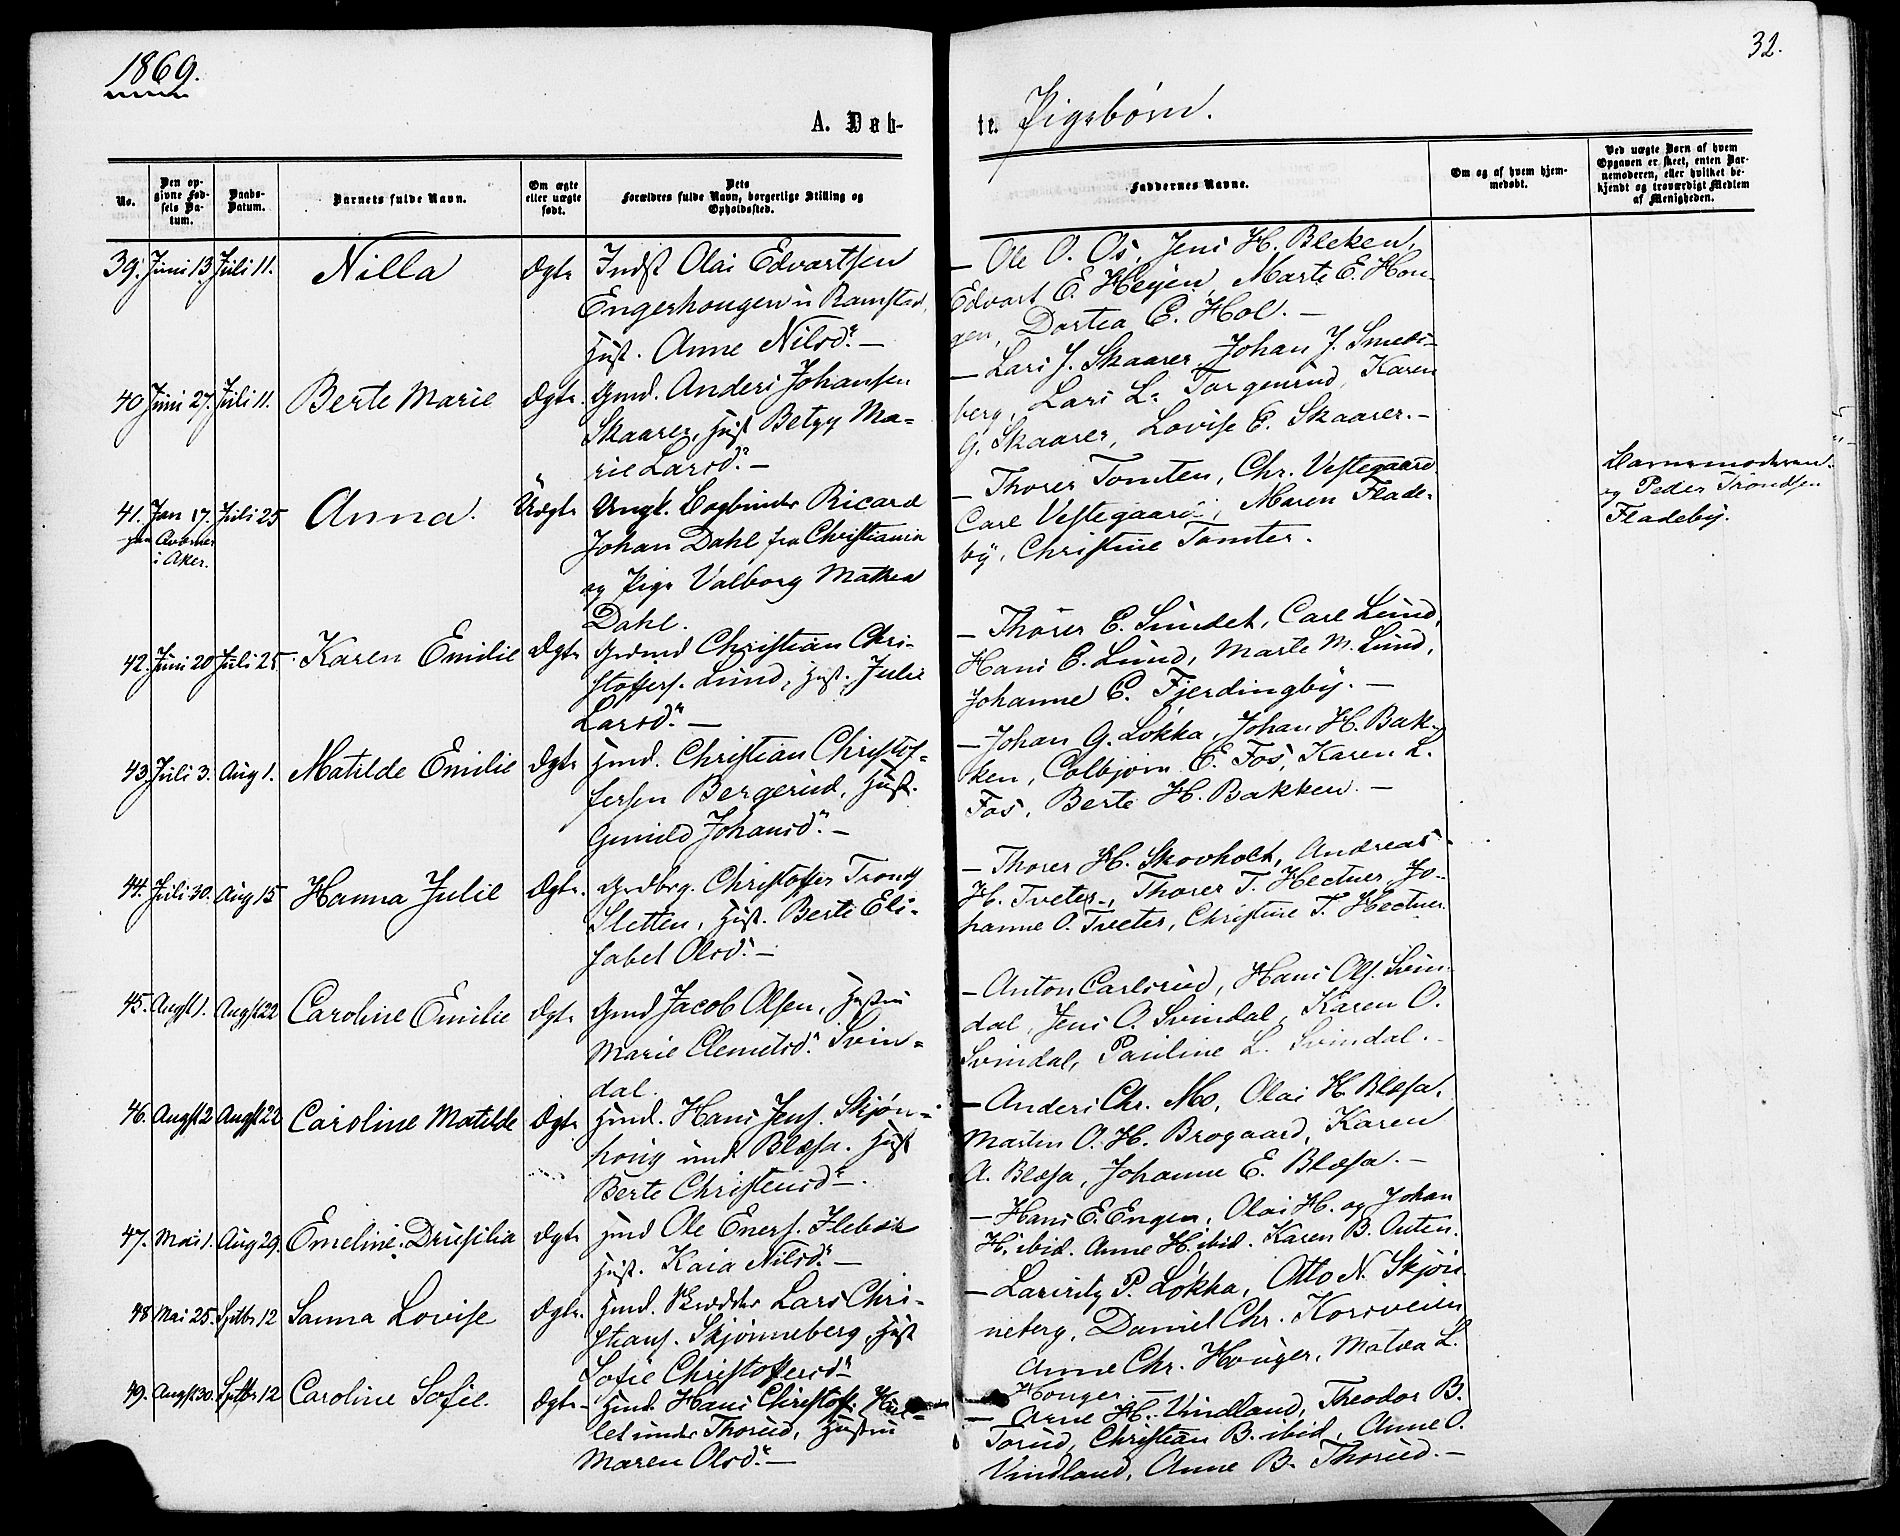 1869.
32.
A. Døb-
te. Pigebørn.
No.
Den op-
givne Fød-
sels Da-
tum.
Daabs-
Datum.
Barnets fulde Navn.
Om ægte
eller uægte
født.
Dets
Forældres fulde Navn, borgerlige Stilling og
Opholdssted.
Faddernes Navne.
Om og af hvem hjem-
medøbt.
Ved uægte Børn af hvem
Opgaven er skeet, enten Bar-
nemoderen, eller hvilket be-
kjendt og troværdigt Medlem
af Menigheden.
39. Juni 13. Juli 11. Nilla Ægte Indst Olai Edvartsen
Engerhougen u Ramstad,
Hust. Anne Nilsd. —
— Ole O. Os, Jens H. Bleken,
Edvart E. Heyen, Marte E. Hou-
gen, Dortea C. Hol. —
40 Juni 27. Juli 11. Berte Marie Ægte. Gmd. Anders Johansen
Skaarer, Hust Betzy Ma-
rie Larsd. —
— Lars J. Skaarer, Johan J. Smeds-
berg, Lars L. Torgenrud, Karen
G. Skaarer, Lovise E. Skaarer. —
41. Jan 17. Juli 25 Anna. Uægte Ungk. Bogbinder Ricard
i Aker.
Johan Dahl fra Christiania
og Pige Valborg Mathea
Dahl.
— Thorer Tomten, Chr. Vestegaard
Carl Vestegaard, Maren Flade-
by, Christine Tomter.
Barnemoderen
og Peder Trondsen
Fladeby.
42. Juni 20 Juli 25 Karen Emilie Ægte Grdmd Christian Chri-
stoffers. Lund, Hust. Julie
Larsd. —
— Thorer E. Sundet, Carl Lund,
Hans C. Lund, Marte M. Lund,
Johanne C. Fjerdingby. —
43. Juli 3. Aug 1. Matilde Emilie Ægte Hmd. Christian Christof-
fersen Bergerud, Hust.
Gunild Johansd. —
— Johan G. Løkka, Johan H. Bak-
ken, Colbjørn E. Fos, Karen L.
Fos, Berte H. Bakken. —
44. Juli 30. Aug 15 Hanna Julie Ægte. Grdbrg. Christoffer Tronds
Sletten, Hust. Berte Eli-
sabet Olsd. —
— Thorer H. Skovholt, Andreas
H. Tveter, Thorer T. Hectner, Jo-
hanne O. Tveter, Christine T. Hectner
45. Augst 1. Augst 22 Caroline Emilie Ægte Gmd Jacob Olsen, Hustru
Marie Clemetsd. Svin-
dal.
— Anton Carlsrud, Hans Ols. Svin-
dal, Jens O. Svindal, Karen O.
Svindal, Pauline L. Svindal. —
46. Augst 2 Augst 22 Caroline Matilde Ægte Hmd. Hans Jens. Skjøn-
houg und Blæsa. Hust
Berte Christensd. —
— Anders Chr. Mo, Olai H Blæsa,
Marten O. H. Brogaard, Karen
A. Blæsa, Johanne E. Blæsa. —
47. Mai 1. Aug 29. Emeline Drusilia Ægte Hmd Ole Eners. Flebæk
Hust. Kaia Nilsd. —
— Hans E. Engen, Olai H. og Johan
H. ibid. Anne H. ibid. Karen B. Auten.
48 Mai 25. Septbr 12 Sanna Lovise Ægte. Hmd. Skrædder Lars Chri-
stians. Skjønneberg, Hust
Sofie Christoffersd. —
— Lauritz P. Løkka, Otto N. Skjøn-
neberg, Daniel Chr. Korsveien
Anne Chr. Houger, Matea L.
Houger. —
49. Augst 30. Septbr 12 Caroline Sofie. Ægte — Hmd. Hans Christoff.
let under Thorud, Hustru
Maren Olsd. —
— Arne H. Vindland, Theodor B.
Torud, Christian B. ibid, Anne O.
Vindland, Anne B. Thorud. —